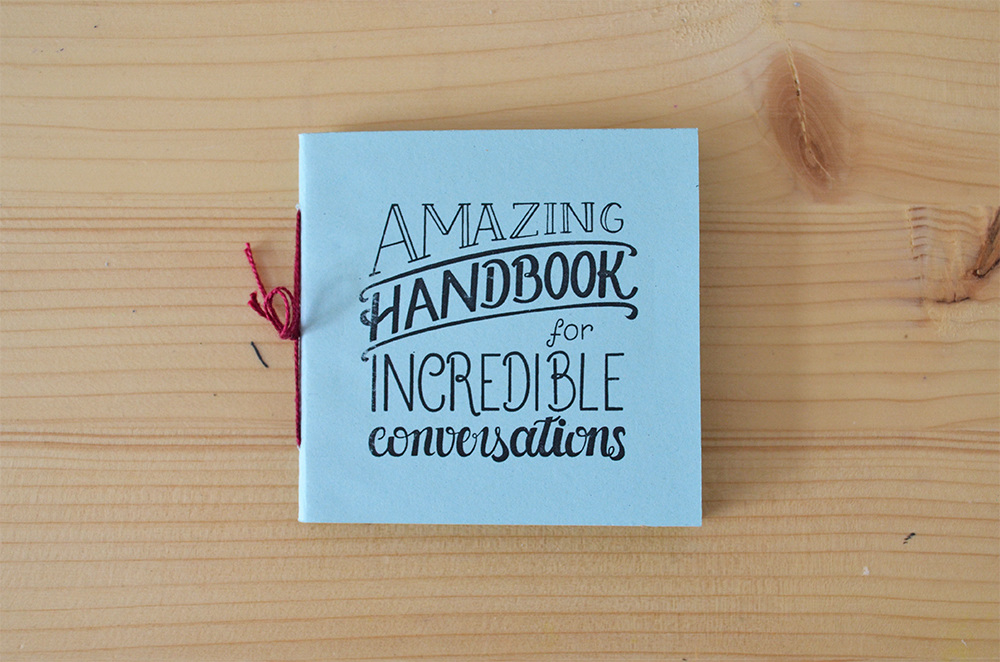 AMAZING
HANDBOOK
for
INCREDIBLE
conversations